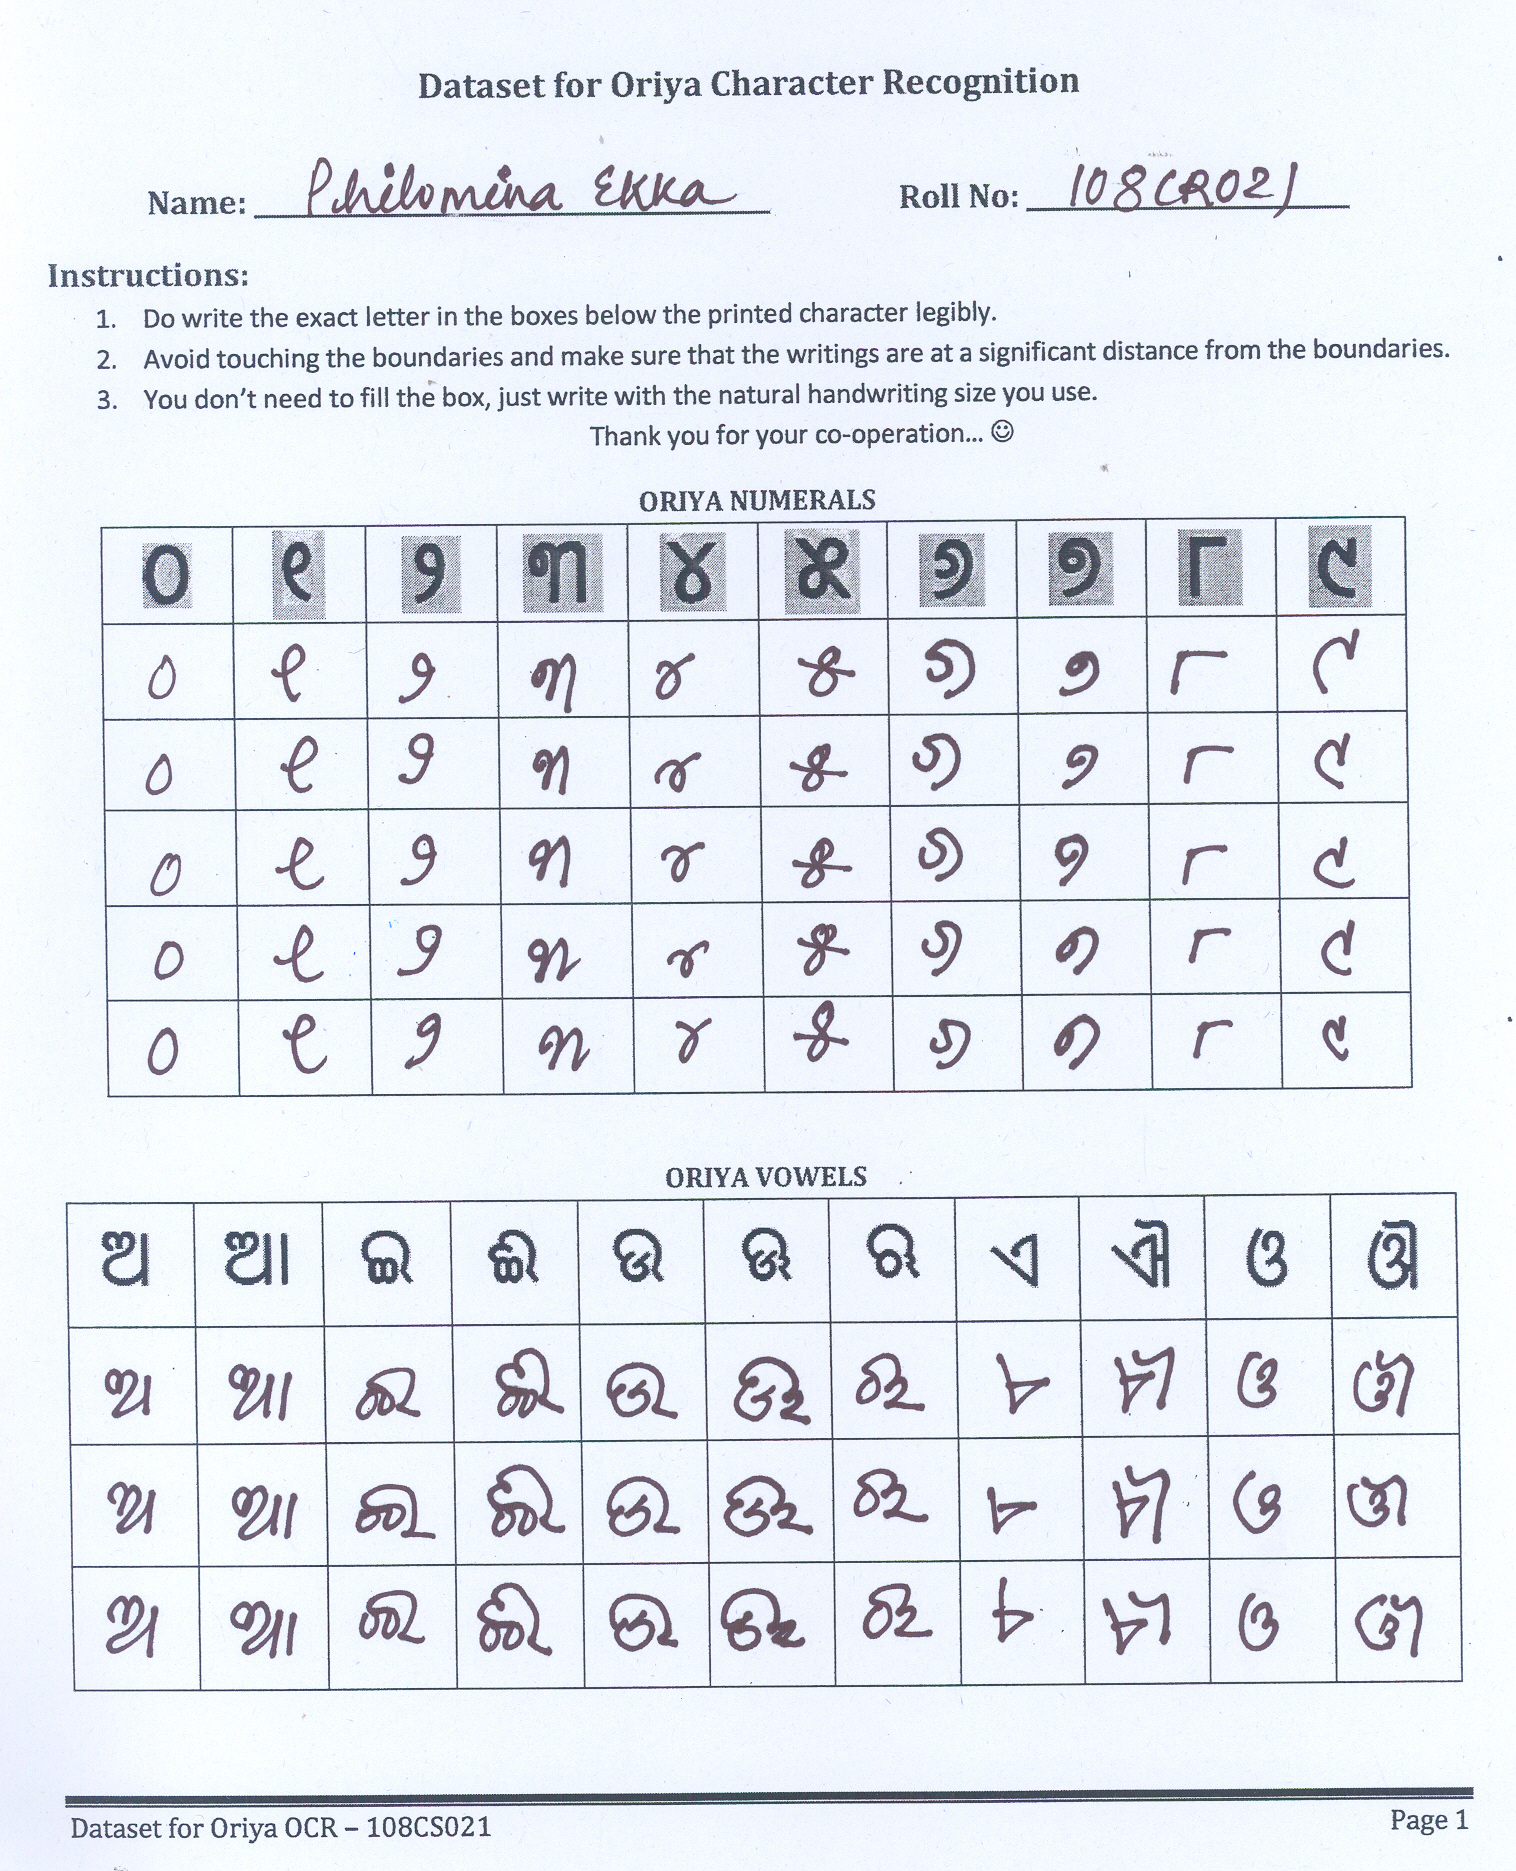 Dataset for Oriya Character Recognition
Name: Philomina Ekka Roll No: 108CR021
Instructions:
1. Do write the exact letter in the boxes below the printed character legibly.
2. Avoid touching the boundaries and make sure that the writings are at a significant distance from the boundaries.
3. You don't need to fill the box, just write with the natural handwriting size you use.
Thank you for your co-operation... ☺
ORIYA NUMERALS
୦ ୧ ୨ ୩ ୪ ୫ ୬ ୭ ୮ ୯
୦ ୧ ୨ ୩ ୪ ୫ ୬ ୭ ୮ ୯
୦ ୧ ୨ ୩ ୪ ୫ ୬ ୭ ୮ ୯
୦ ୧ ୨ ୩ ୪ ୫ ୬ ୭ ୮ ୯
୦ ୧ ୨ ୩ ୪ ୫ ୬ ୭ ୮ ୯
୦ ୧ ୨ ୩ ୪ ୫ ୬ ୭ ୮ ୯
ORIYA VOWELS
ଅ ଆ ଇ ଈ ଉ ଊ ଋ ଏ ଐ ଓ ଔ
ଅ ଆ ଇ ଈ ଉ ଊ ଋ ଏ ଐ ଓ ଔ
ଅ ଆ ଇ ଈ ଉ ଊ ଋ ଏ ଐ ଓ ଔ
ଅ ଆ ଇ ଈ ଉ ଊ ଋ ଏ ଐ ଓ ଔ
Dataset for Oriya OCR – 108CS021 Page 1